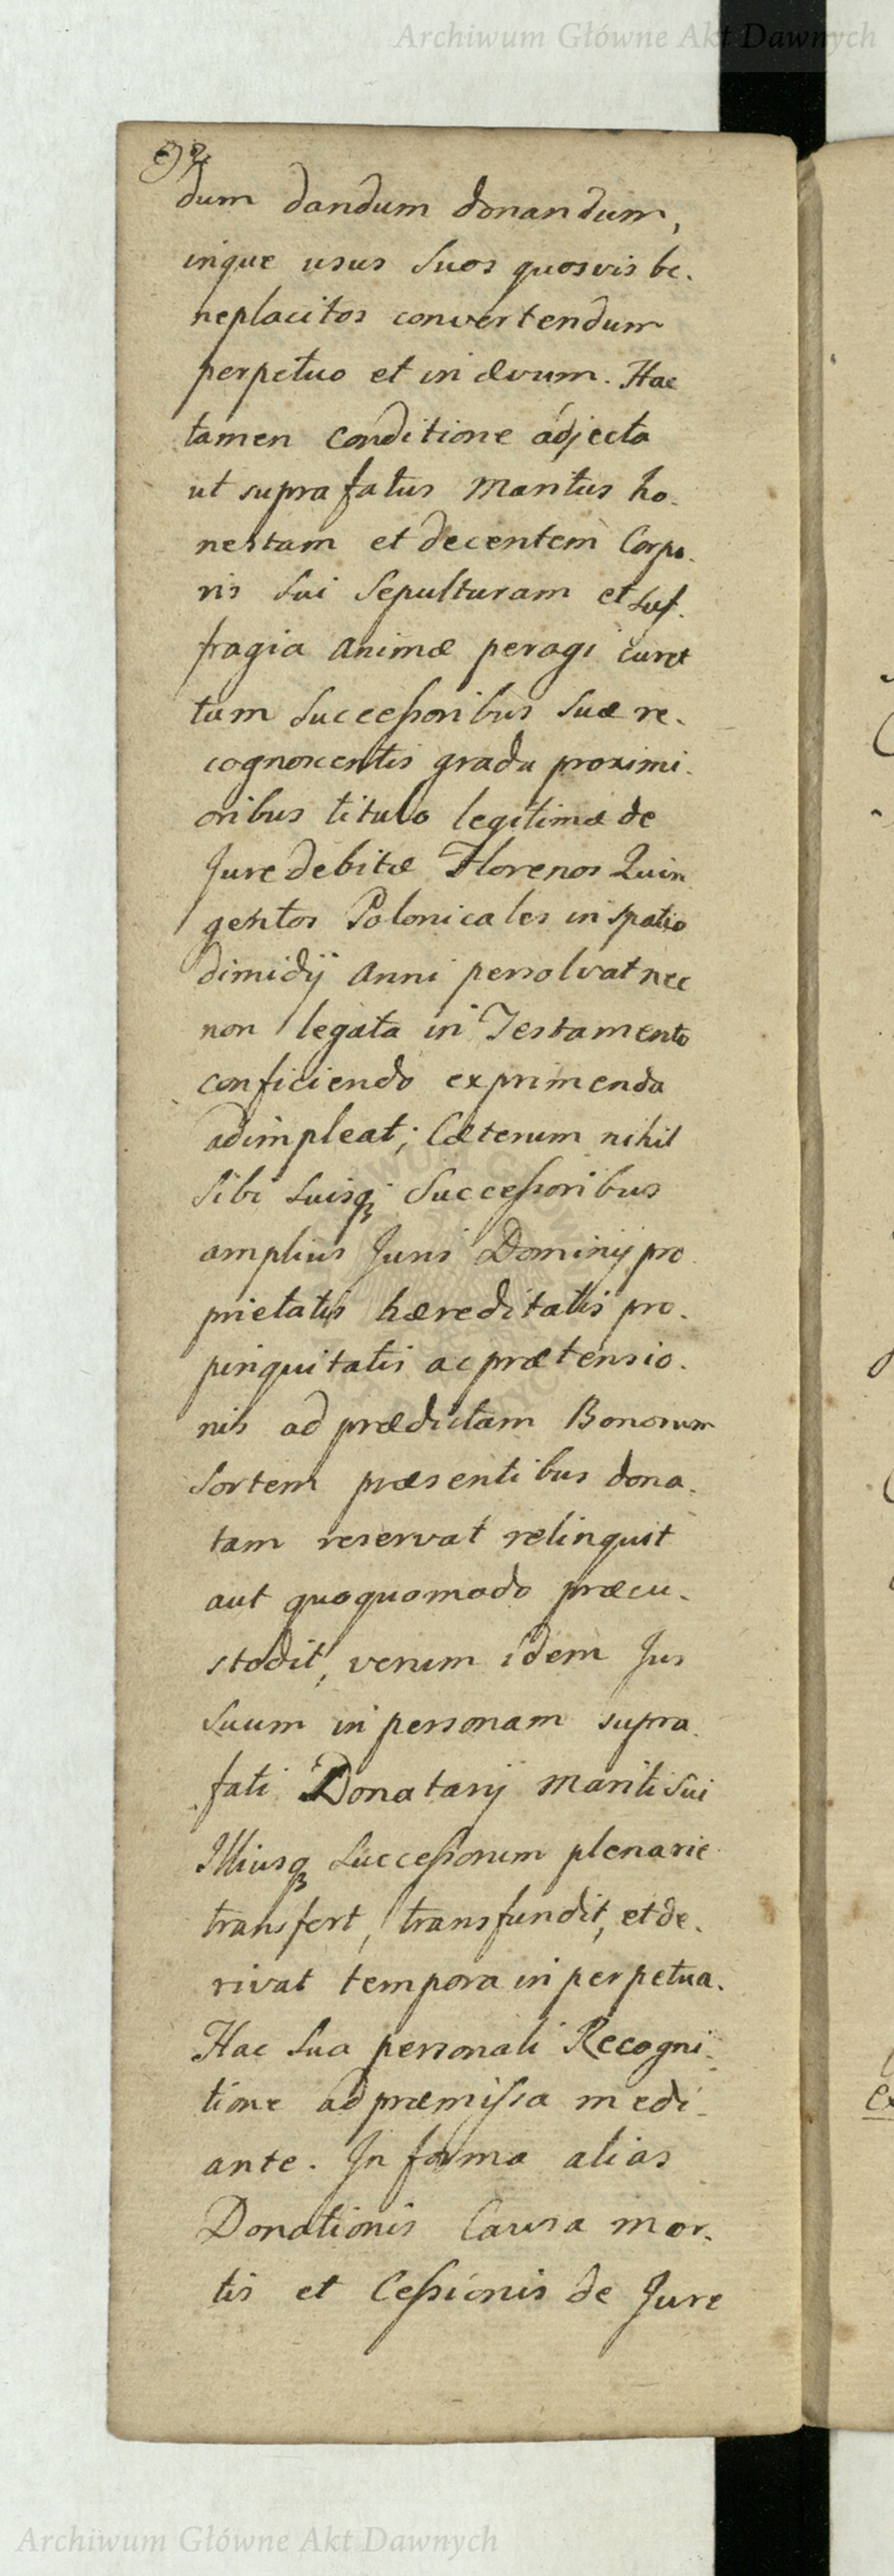 Archiwum Główne Akt Dawnych
92
dum dandum donandum,
inque usus Suos quosvis be.
neplacitos convertendum
perpetuo et in ævum. Hac
tamen Conditione adjecta
ut suprafatus Maritus ho.
nestam et decentem Corpo.
ris Sui Sepulturam et Suf.
fragia Animæ peragi curet
tum Successoribus Suæ re.
cognoscentis gradu proximi.
oribus titulo legitimæ de
Jure debitæ Florenos Quin
gentos Polonicales in spatio
dimidij Anni persolvat nec
non legata in Testamento
conficiendo exprimenda
adimpleat; Cæterum nihil
Sibi Suisq; Successoribus
amplius Juris Dominij pro
prietatis hæreditatis pro.
pinquitatis ac prætensio.
nis ad prædictam Bonorum
Sortem præsentibus dona.
tam reservat relinquit
aut quoquomodo præcu.
stodit, verum idem Jus
Suum in personam supra.
fati Donatarij Mariti Sui
Illiusq; Successorum plenarie
transfert, transfundit, et de.
rivat tempora in perpetua.
Hac Sua personali Recogni.
tione ad præmissa medi.
ante. In forma alias
Donationis Causa mor.
tis et Cessionis de Jure
Archiwum Główne Akt Dawnych